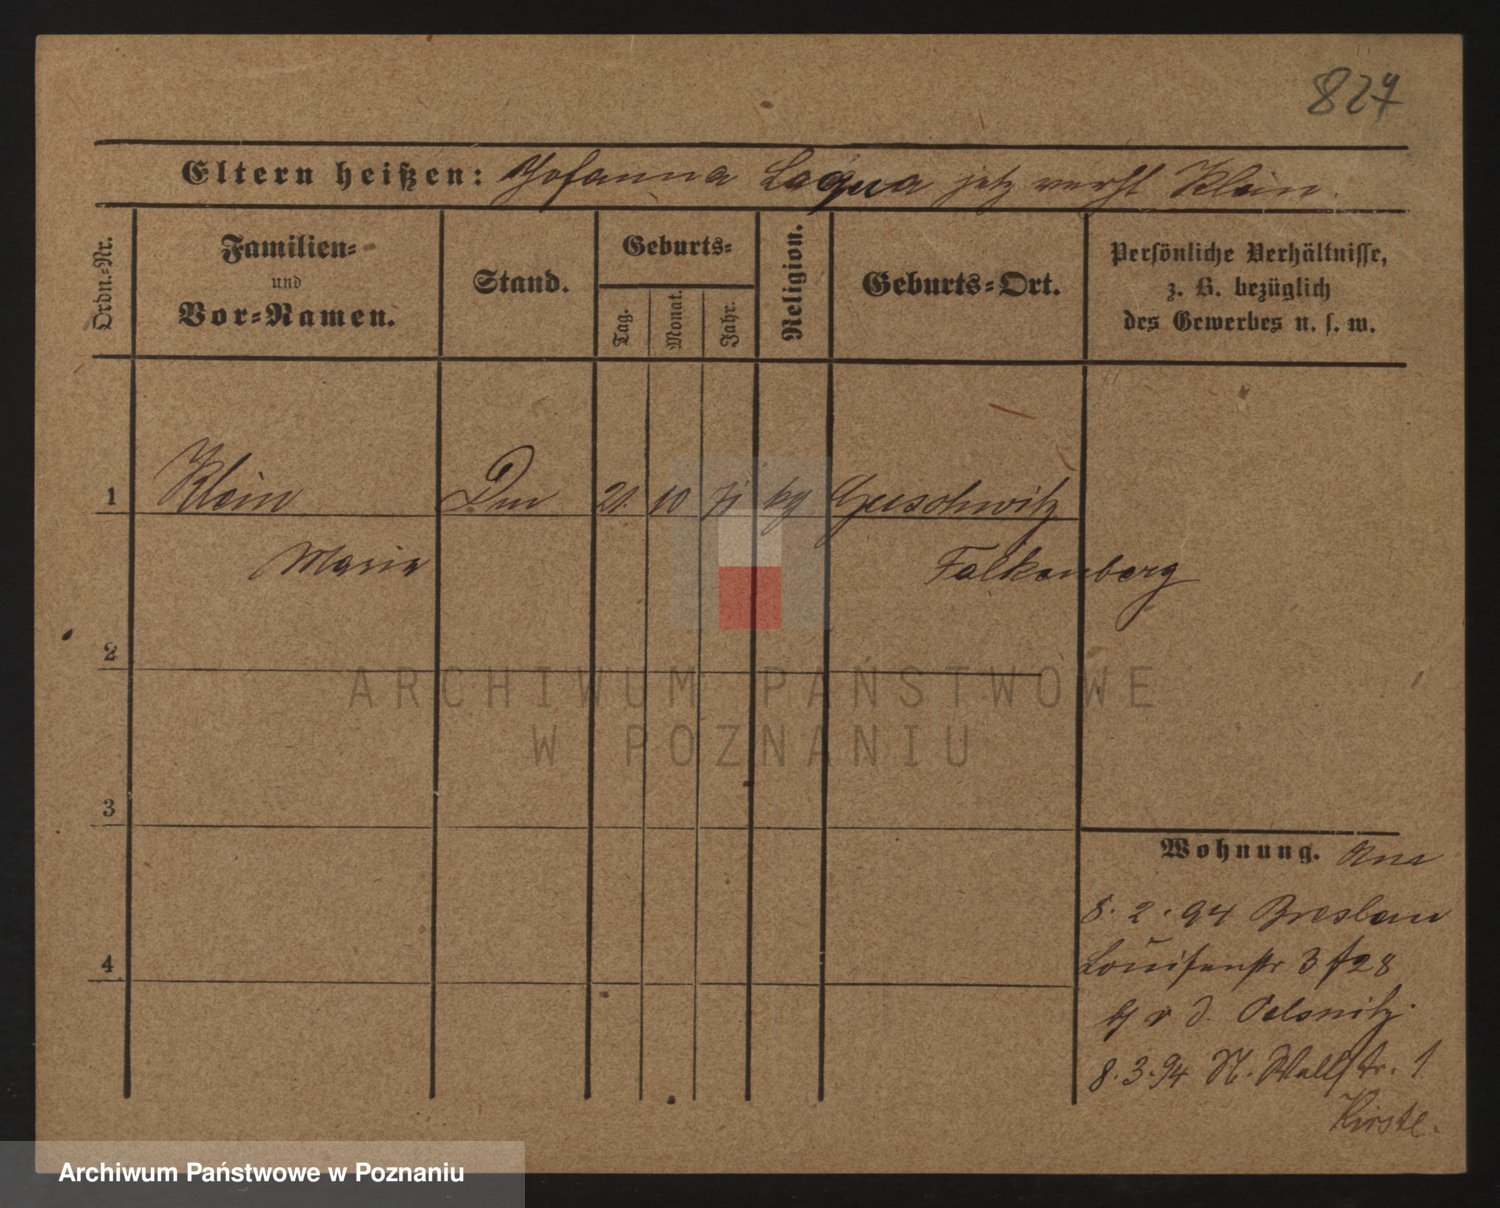 827
Eltern heißen: Johanna Laqua jetz verhl Klein.
Ordn.-Nr.
Familien- und Vor-Namen.
Stand.
Geburts-
Tag.
Monat.
Jahr.
Religion.
Geburts-Ort.
Persönliche Verhältnisse,
z. B. bezüglich
des Gewerbes u. s. w.
1 Klein 21. 10 71 kg Geschwitz
Maria Falkenberg
2
3
4
Wohnung. Aus
8. 2. 94 Breslau
Louisenstr 3 f28
v d. Oelsnitz.
8.3.94 N. Wallstr. 1
Kirste.
ARCHIWUM PAŃSTWOWE
W POZNANIU
Archiwum Państwowe w Poznaniu